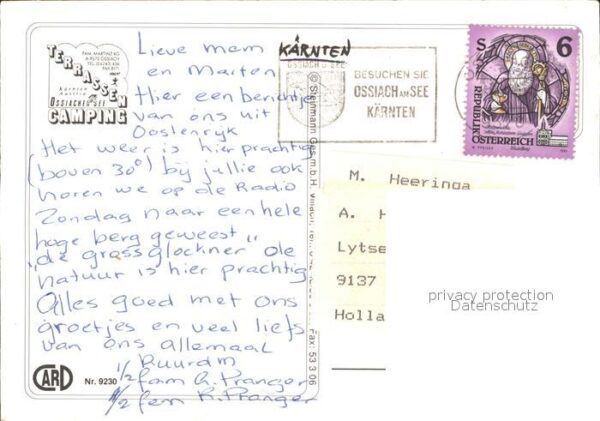 FAM. MARTINZ KG
TERRASSEN
Kärnten
Austria
OSSIACHER SEE
CAMPING
Lieve mem
en Marten
Hier een berichtje
van ons uit
Oostenryk
Het weer is hier prachtig
(boven 30°) bij jullie ook
horen we op de Radio
Zondag naar een hele
hoge berg geweest"
"de grassglockner de
natuur is hier prachtig
Alles goed met ons
groetjes en veel liefs
van ons allemaal
Ruurd m
1/2 fam R. Pranger
1/2 fam R. Pranger
CARD
Nr. 9230
KÄRNTEN
OSSIACH SEE
BESUCHEN SIE
OSSIACH AM SEE
KÄRNTEN
S 6
REPUBLIK
ÖSTERREICH
M. Heeringa
A. H
Lytse
9137
Holla
privacy protection
Datenschutz
Fax: 53 3 06